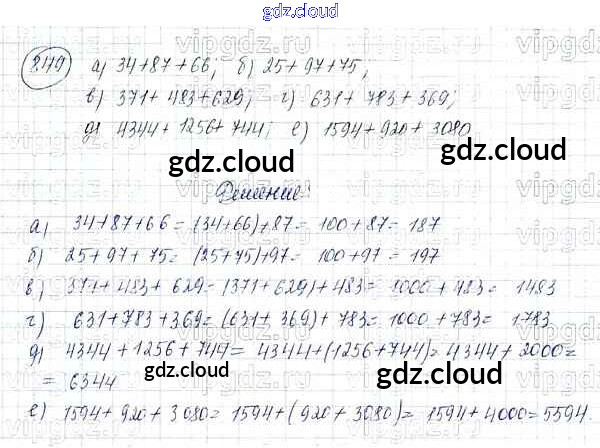 gdz.cloud
8.179 а) 34+87+66; б) 25+97+75;
в) 371+483+629; г) 631+783+369;
д) 4344+1256+744; е) 1594+920+3080
gdz.cloud gdz.cloud
Решение:
а) 34+87+66=(34+66)+87=100+87=187
б) 25+97+75=(25+75)+97=100+97=197
в) 371+483+629=(371+629)+483=1000+483=1483
г) 631+783+369=(631+369)+783=1000+783=1783
д) 4344+1256+744=4344+(1256+744)=4344+2000=
=6344
gdz.cloud gdz.cloud
е) 1594+920+3080=1594+(920+3080)=1594+4000=5594.